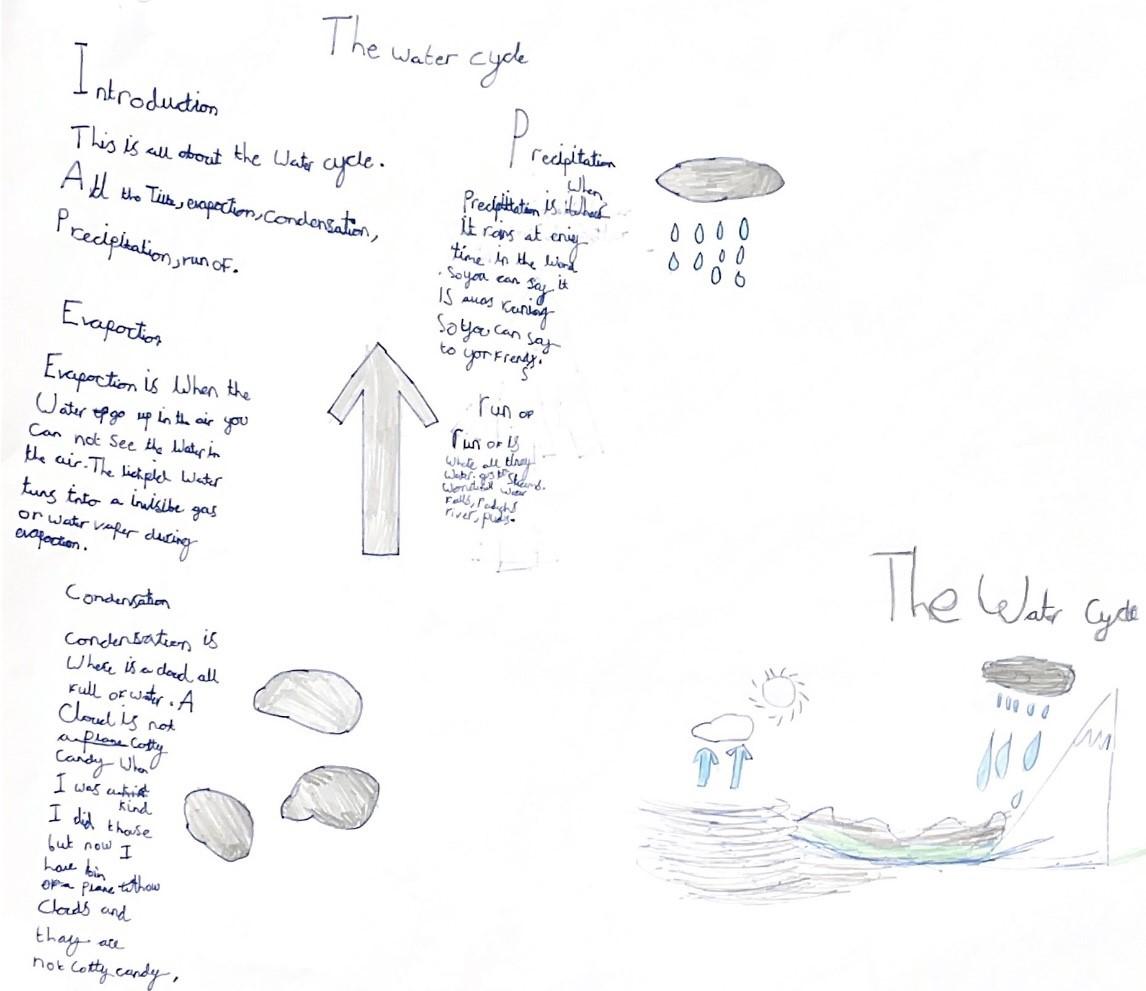 The water cycle
Introduction
This is all about the Water cycle.
All the Title, evapoction, Condensation,
Precipitation, run of.
Evapoction
Evapoction is When the
Water go up in the air you
Can not See the Water in
the air. The Water
tuns into a invisibe gas
or water vaper during
evapoction.
Condensation
Condensation is
Where is a cloud all
Full of water. A
Cloud is not
a plane Cotty
Candy When
I was a
kind
I did thouse
but now I
have bin
of a plane
Clouds and
thay are
not Cotty candy,
Precipitation
When
Precipitation is
It rans at eniy
time in the Word
. So you can say it
IS
So you can say
to yor Frends.
s
run of
run of is
Where all they
Water

river,
The Water Cycle